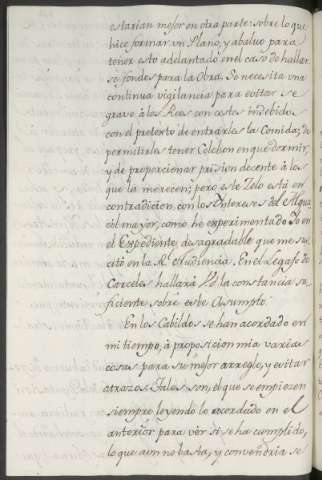 estarian mejor en otra parte: sobre lo que
hice formar un Plano, y abaluo para
tener esto adelantado en el caso de hallar
se fondos para la Obra. Se necesita una
continua vigilancia para evitar se
grave à los Reos con costos indebidos,
con el pretexto de entrarles la Comida; de
permitirles tener Colchon en que dormir,
y de proporcionar prision decente à los
que la merecen; pero este Zelo està en
contradicion con los Yntereses del Algua
cil mayor, como hè experimentado Yo en
el Expediente desagradable que me su
citò en la Rl. Audiencia. En el Legajo de
Carceles hallarà la constancia su
ficiente sobre este Asumpto.
En los Cabildos se han acordado en
mi tiempo, à proposicion mia varias
cosas para su mejor arreglo, y evitar
atrazos. Tales son, el que se empiezen
siempre leyendo lo acordado en el
anterior para vèr si se ha cumplido,
lo que aun no basta, y convendria se